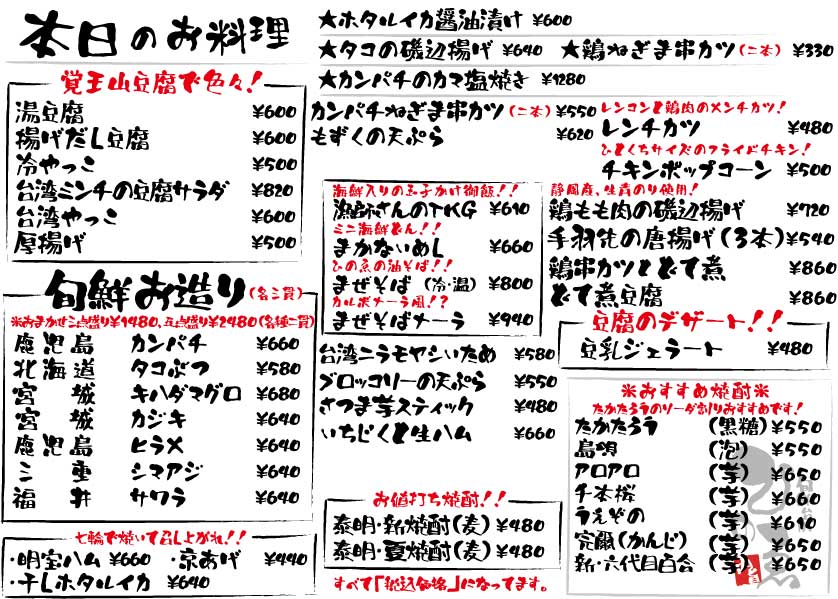 本日のお料理
★ホタルイカ醤油漬け ¥600
★タコの磯辺揚げ ¥640 ★鶏ねぎま串カツ(二本) ¥330
★カンパチのカマ塩焼き ¥1280
覚王山豆腐で色々!
湯豆腐 ¥600
揚げだし豆腐 ¥600
冷やっこ ¥500
台湾ミンチの豆腐サラダ ¥820
台湾やっこ ¥600
厚揚げ ¥500
カンパチねぎま串カツ(二本) ¥550
もずくの天ぷら ¥620
レンコンと鶏肉のメンチカツ!
レンチカツ ¥480
ひとくちサイズのフライドチキン!
チキンポップコーン ¥500
海鮮入りの玉子かけ御飯!!
漁師さんのTKG ¥610
ミニ海鮮どん!!
まかないめし ¥660
ひの魚の油そば!!
まぜそば(冷・温) ¥800
カルボナーラ風!?
まぜそばナーラ ¥940
静岡産、生青のり使用!
鶏もも肉の磯辺揚げ ¥720
手羽先の唐揚げ(3本) ¥540
鶏串カツとどて煮 ¥860
どて煮豆腐 ¥860
旬鮮お造り(各三貫)
※おまかせ三点盛り¥1480、五点盛り¥2480(各種二貫)
鹿児島 カンパチ ¥660
北海道 タコぶつ ¥580
宮城 キハダマグロ ¥680
宮城 カジキ ¥640
鹿児島 ヒラメ ¥640
三重 シマアジ ¥640
福井 サワラ ¥640
台湾ニラモヤシいため ¥580
ブロッコリーの天ぷら ¥550
さつま芋スティック ¥480
いちじくと生ハム ¥660
豆腐のデザート!!
豆乳ジェラート ¥480
※おすすめ焼酎※
たかたろうのソーダ割りおすすめです!
たかたろう (黒糖) ¥550
島明 (泡) ¥550
アロアロ (芋) ¥650
千本桜 (芋) ¥660
うえぞの (芋) ¥610
完爾(かんじ) (芋) ¥650
新・六代目百合 (芋) ¥650
七輪で焼いて召し上がれ!!
・明宝ハム ¥660 ・京あげ ¥440
・干しホタルイカ ¥640
お値打ち焼酎!!
泰明・新焼酎(麦) ¥480
泰明・夏焼酎(麦) ¥480
すべて「税込価格」になってます。